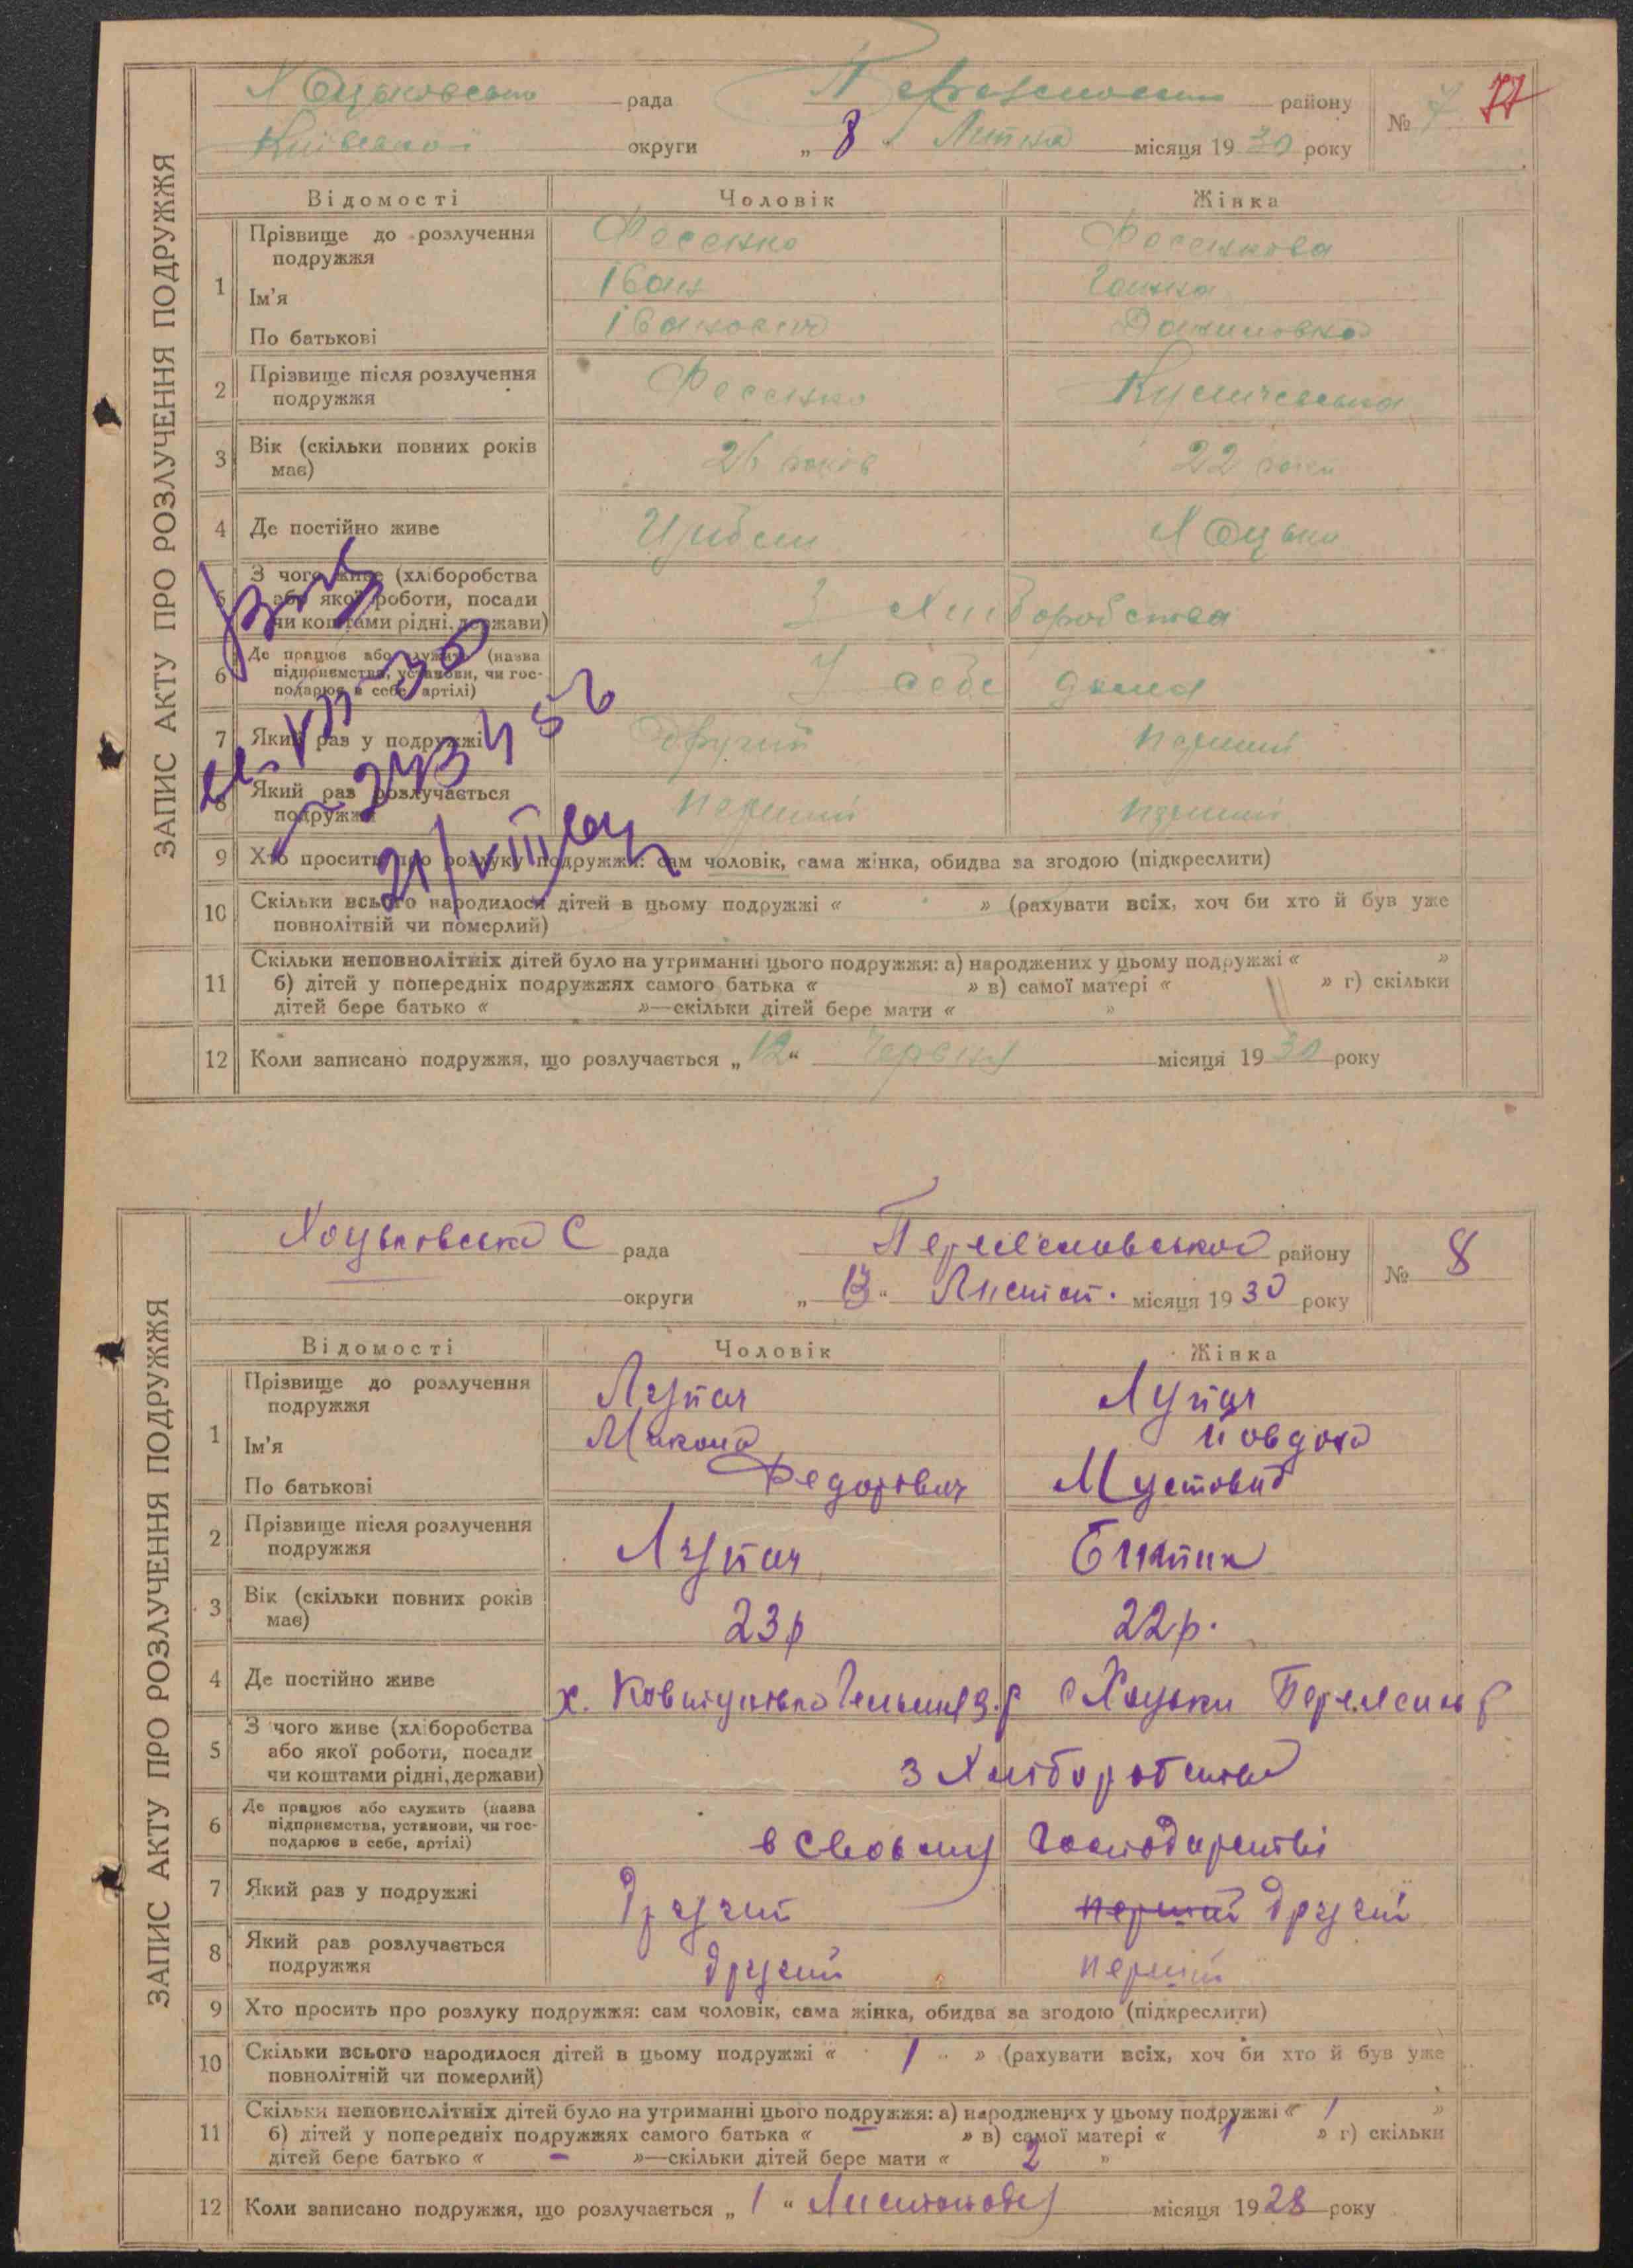 ЗАПИС АКТУ ПРО РОЗЛУЧЕННЯ ПОДРУЖЖЯ
Хоцьковська рада район у № 7 77
Київської округи „ 8 “ Липня місяця 1930 року
Відомості Чоловік Жінка
1 Прізвище до розлучення подружжя Фесенко Фесенкова
Ім'я Іван Ганна
По батькові Іванович
2 Прізвище після розлучення подружжя Фесенко
3 Вік (скільки повних років має) 26 років 22 роки
4 Де постійно живе Циблі Хоцьки
5 З чого живе (хліборобства або якої роботи, посади чи коштами рідні, держави) З Хліборобства
6 Де працює або служить (назва підприємства, установи, чи господарює в себе, артілі) У себе дома
7 Який раз у подружжі Другий перший
8 Який раз розлучається подружжя перший перший
9 Хто просить про розлуку подружжя: сам чоловік, сама жінка, обидва за згодою (підкреслити)
10 Скільки всього народилося дітей в цьому подружжі « » (рахувати всіх, хоч би хто й був уже
повнолітній чи померлий)
11 Скільки неповнолітніх дітей було на утриманні цього подружжя: а) народжених у цьому подружжі « »
б) дітей у попередніх подружжях самого батька « » в) самої матері « » г) скільки
дітей бере батько « »—скільки дітей бере мати « »
12 Коли записано подружжя, що розлучається „ 12 “ Червня місяця 1930 року
21/VIII
ЗАПИС АКТУ ПРО РОЗЛУЧЕННЯ ПОДРУЖЖЯ
Хоцьковська С рада Переяславського району № 8
округи „ 13 “ Листоп. місяця 1930 року
Відомості Чоловік Жінка
1 Прізвище до розлучення подружжя Лупач Лупач
Ім'я Микола Йовдоха
По батькові Федорович
2 Прізвище після розлучення подружжя Лупач
3 Вік (скільки повних років має) 23р 22р.
4 Де постійно живе х. с Хоцьки Переяслів р
5 З чого живе (хліборобства або якої роботи, посади чи коштами рідні, держави) З Хліборобства
6 Де працює або служить (назва підприємства, установи, чи господарює в себе, артілі) в своєму господарстві
7 Який раз у подружжі Другий перший другий
8 Який раз розлучається подружжя другий перший
9 Хто просить про розлуку подружжя: сам чоловік, сама жінка, обидва за згодою (підкреслити)
10 Скільки всього народилося дітей в цьому подружжі « 1 » (рахувати всіх, хоч би хто й був уже
повнолітній чи померлий)
11 Скільки неповнолітніх дітей було на утриманні цього подружжя: а) народжених у цьому подружжі « 1 »
б) дітей у попередніх подружжях самого батька « – » в) самої матері « 1 » г) скільки
дітей бере батько « – »—скільки дітей бере мати « 2 »
12 Коли записано подружжя, що розлучається „ 1 “ Листопада місяця 1928 року